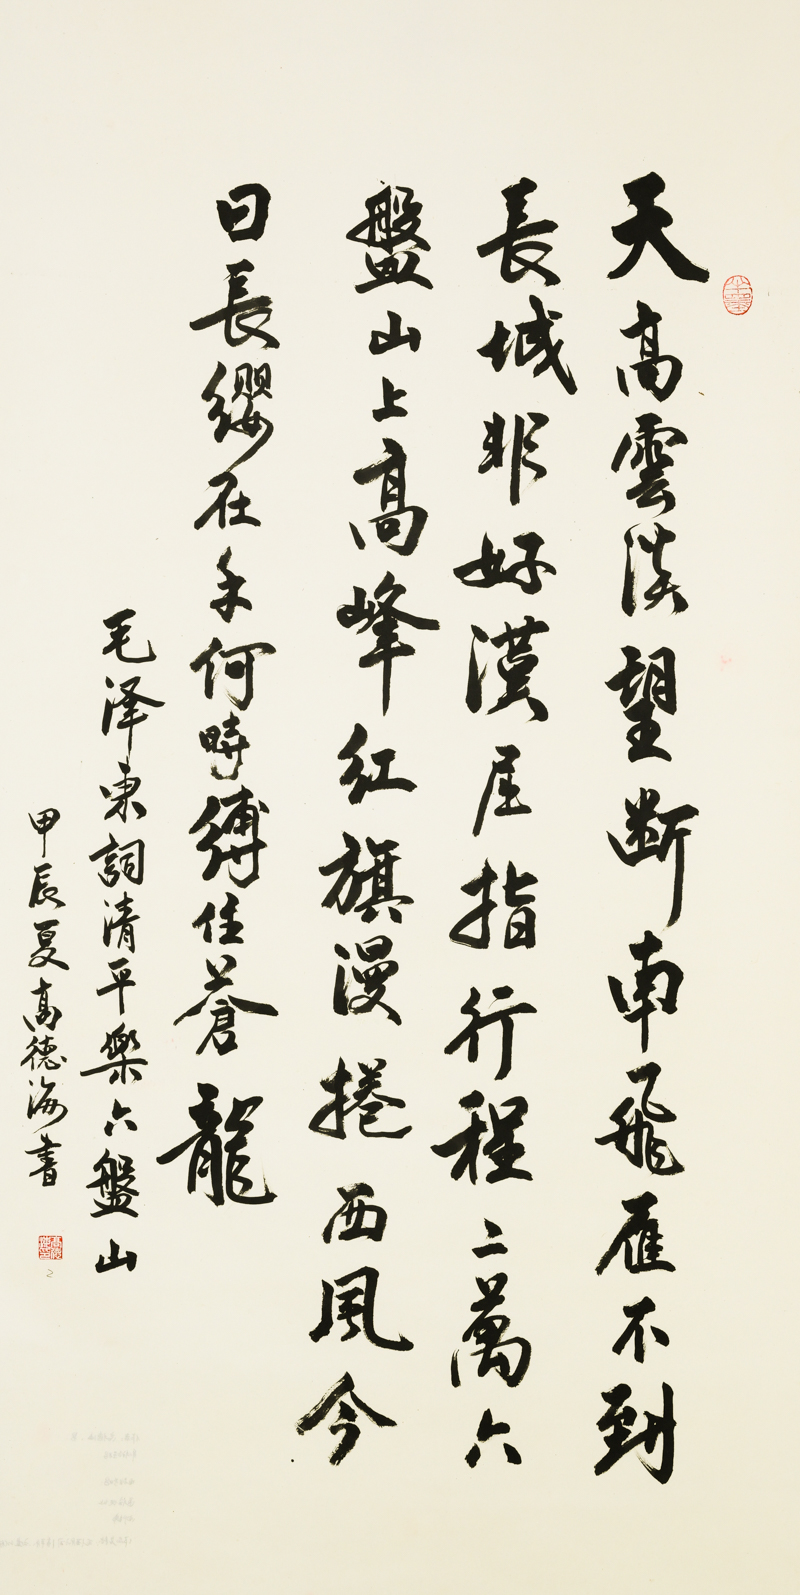 天高雲淡望斷南飛雁不到
長城非好漢屈指行程二萬六
盤山上高峰紅旗漫捲西風今
日長纓在手何時縛住蒼龍
毛泽東詞清平樂六盤山
甲辰夏高德海書